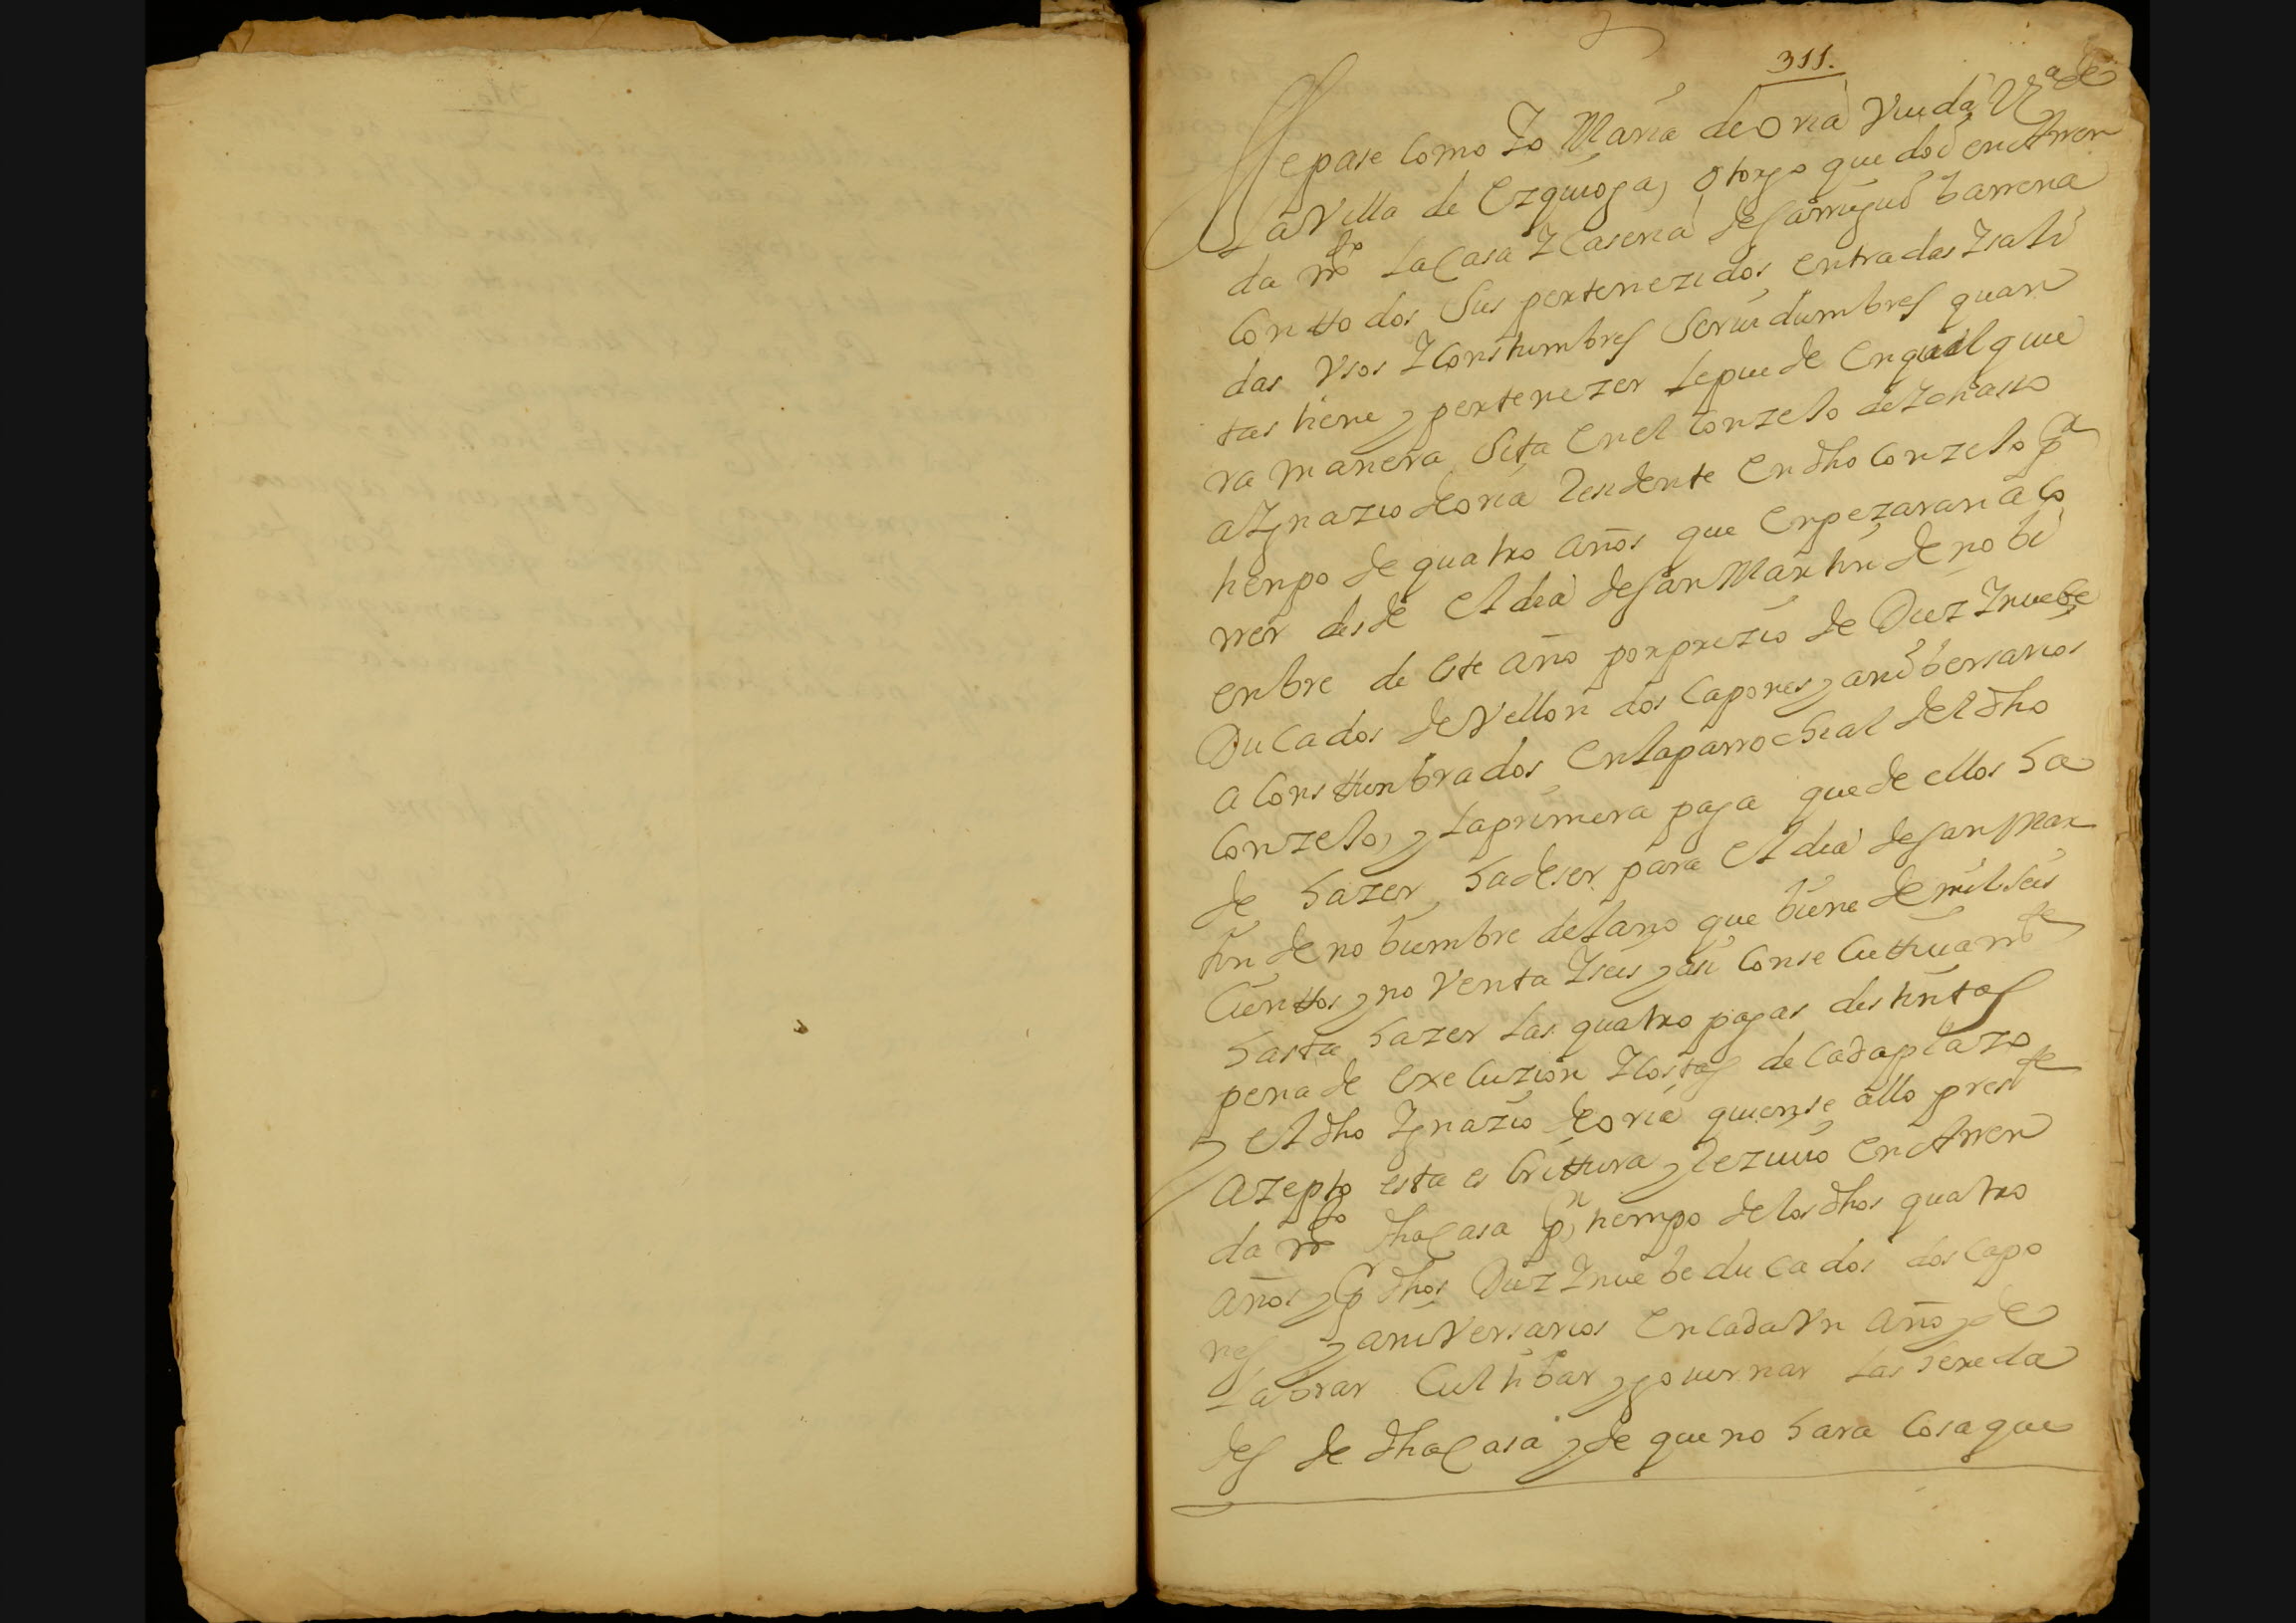 311.
Sepase Como Yo Maria de Oria Viuda Vª de
La Villa de Ezquioga, otorgo que doi en Arren
da mto La Casa Y Caseria de Sarrugui barrena
Con ttodos Sus pertenezidos, entradas Y sali
das Vsos Y Constumbres Seruidumbres quan
tas tiene y pertenezer Le puede En qualquie
ra manera Sita En el Conzelo de Ychasso
a Ygnazio de oria Residente En dho Conzelo pr
tienpo de quatro años que Enpezaran a Co
rrer desde El dia de San Martin de nobi
enbre de este año por prezio de Diez Y nuebe
Ducados de Vellon dos Capones y anibersarios
a Consttunbrados En la parrochial del dho
Conzelo, y La primera paga que de ellos ha
de hazer ha de ser para El dia de San Mar
tin de nobiembre del año que biene de mil seis
Cienttos y noventa Y seis y asi Conse Cuttiuamte
hasta hazer Las quatro pagas distintas
pena de Execuzion Y Costas de Cada plazo
y El dho Ygnazio de oria quien se allo preste
azepto esta escrittura y Rezuio En Arren
da mto dha Casa pr tiempo de los dhos quatro
años y pr dhos Diez Y nuebe ducados dos Capo
nes y aniversarios En Cada Vn año y de
Labrar Cultibar y gouernar Las hereda
des de dha Casa y de que no hara Cosa que